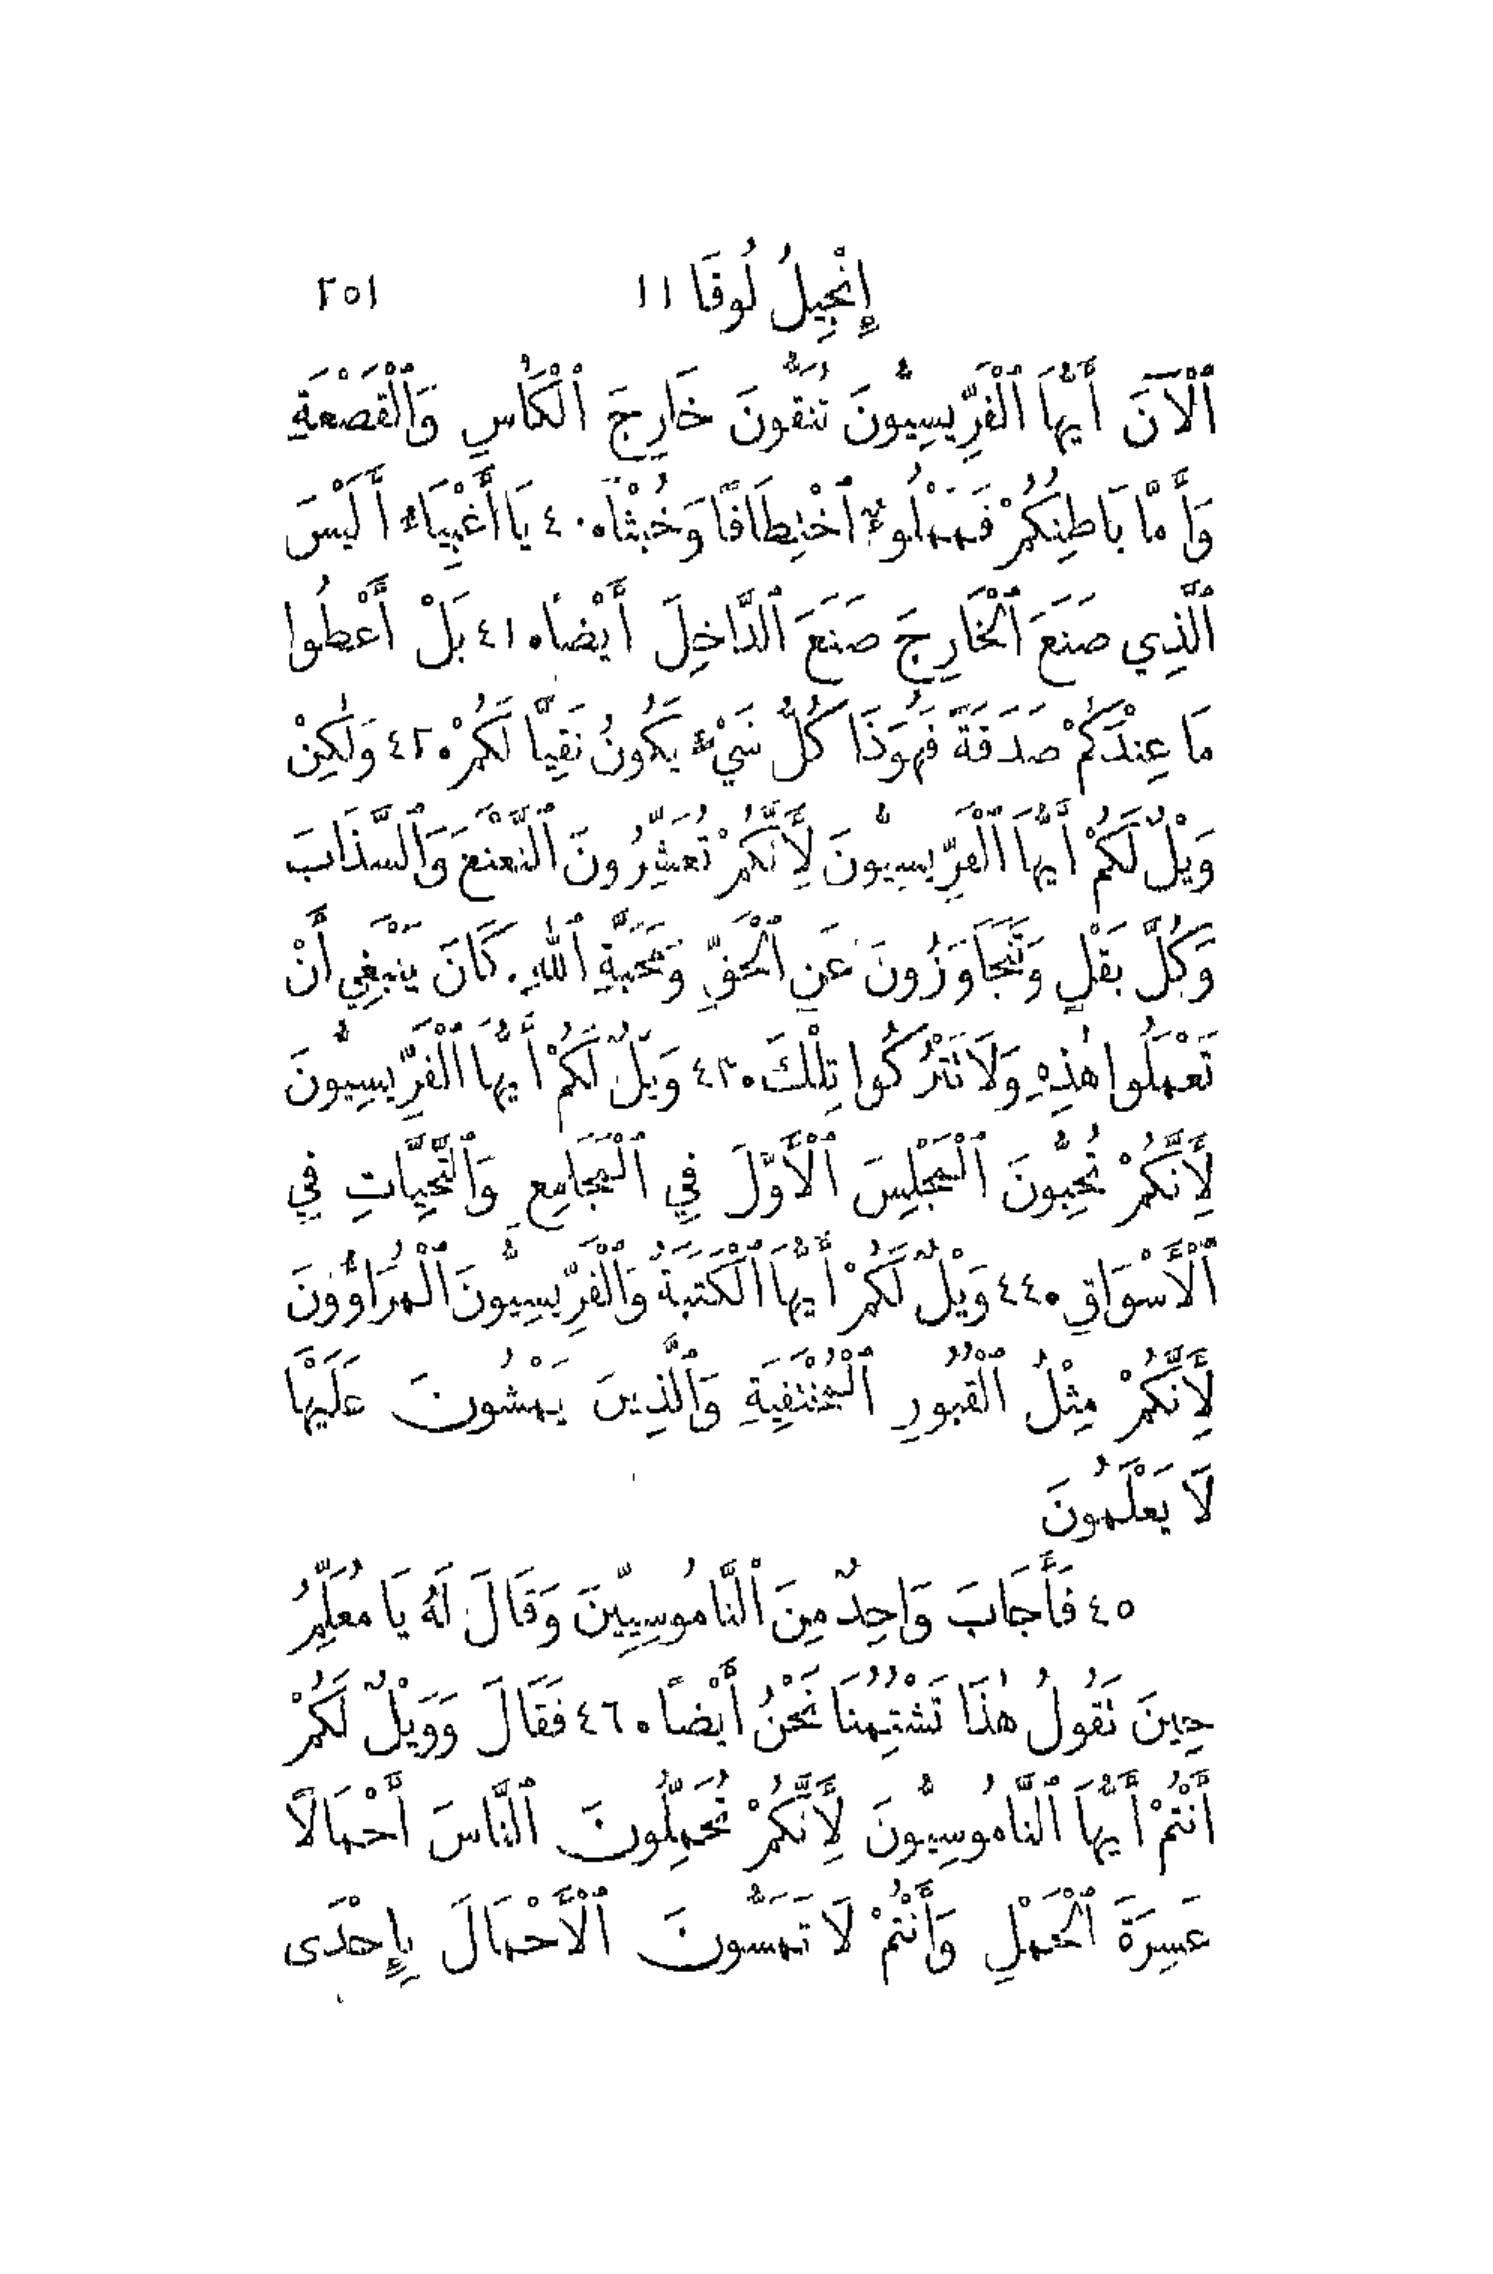 إِنْجِيلُ لُوقَا ١١ ٢٥١
ٱلْآنَ أَيُّهَا ٱلْفَرِّيسِيُّونَ تُنَقُّونَ خَارِجَ ٱلْكَأْسِ وَٱلْقَصْعَةِ
وَأَمَّا بَاطِنُكُمْ فَمَمْلُوءٌ ٱخْتِطَافًا وَخُبْثًا. ٤٠ يَا أَغْبِيَاءُ أَلَيْسَ
ٱلَّذِي صَنَعَ ٱلْخَارِجَ صَنَعَ ٱلدَّاخِلَ أَيْضًا. ٤١ بَلْ أَعْطُوا
مَا عِنْدَكُمْ صَدَقَةً فَهُوَذَا كُلُّ شَيْءٍ يَكُونُ نَقِيًّا لَكُمْ. ٤٢ وَلٰكِنْ
وَيْلٌ لَكُمْ أَيُّهَا ٱلْفَرِّيسِيُّونَ لِأَنَّكُمْ تُعَشِّرُونَ ٱلنَّعْنَعَ وَٱلسَّذَابَ
وَكُلَّ بَقْلٍ وَتَتَجَاوَزُونَ عَنِ ٱلْحَقِّ وَمَحَبَّةِ ٱللهِ. كَانَ يَنْبَغِي أَنْ
تَعْمَلُوا هٰذِهِ وَلَا تَتْرُكُوا تِلْكَ. ٤٣ وَيْلٌ لَكُمْ أَيُّهَا ٱلْفَرِّيسِيُّونَ
لِأَنَّكُمْ تُحِبُّونَ ٱلْمَجْلِسَ ٱلْأَوَّلَ فِي ٱلْمَجَامِعِ وَٱلتَّحِيَّاتِ فِي
ٱلْأَسْوَاقِ. ٤٤ وَيْلٌ لَكُمْ أَيُّهَا ٱلْكَتَبَةُ وَٱلْفَرِّيسِيُّونَ ٱلْمُرَاؤُونَ
لِأَنَّكُمْ مِثْلُ ٱلْقُبُورِ ٱلْمُخْتَفِيَةِ وَٱلَّذِينَ يَمْشُونَ عَلَيْهَا
لَا يَعْلَمُونَ
٤٥ فَأَجَابَ وَاحِدٌ مِنَ ٱلنَّامُوسِيِّينَ وَقَالَ لَهُ يَا مُعَلِّمُ
حِينَ تَقُولُ هٰذَا تَشْتِمُنَا نَحْنُ أَيْضًا. ٤٦ فَقَالَ وَوَيْلٌ لَكُمْ
أَنْتُمْ أَيُّهَا ٱلنَّامُوسِيُّونَ لِأَنَّكُمْ تُحَمِّلُونَ ٱلنَّاسَ أَحْمَالًا
عَسِرَةَ ٱلْحَمْلِ وَأَنْتُمْ لَا تَمَسُّونَ ٱلْأَحْمَالَ بِإِحْدَى